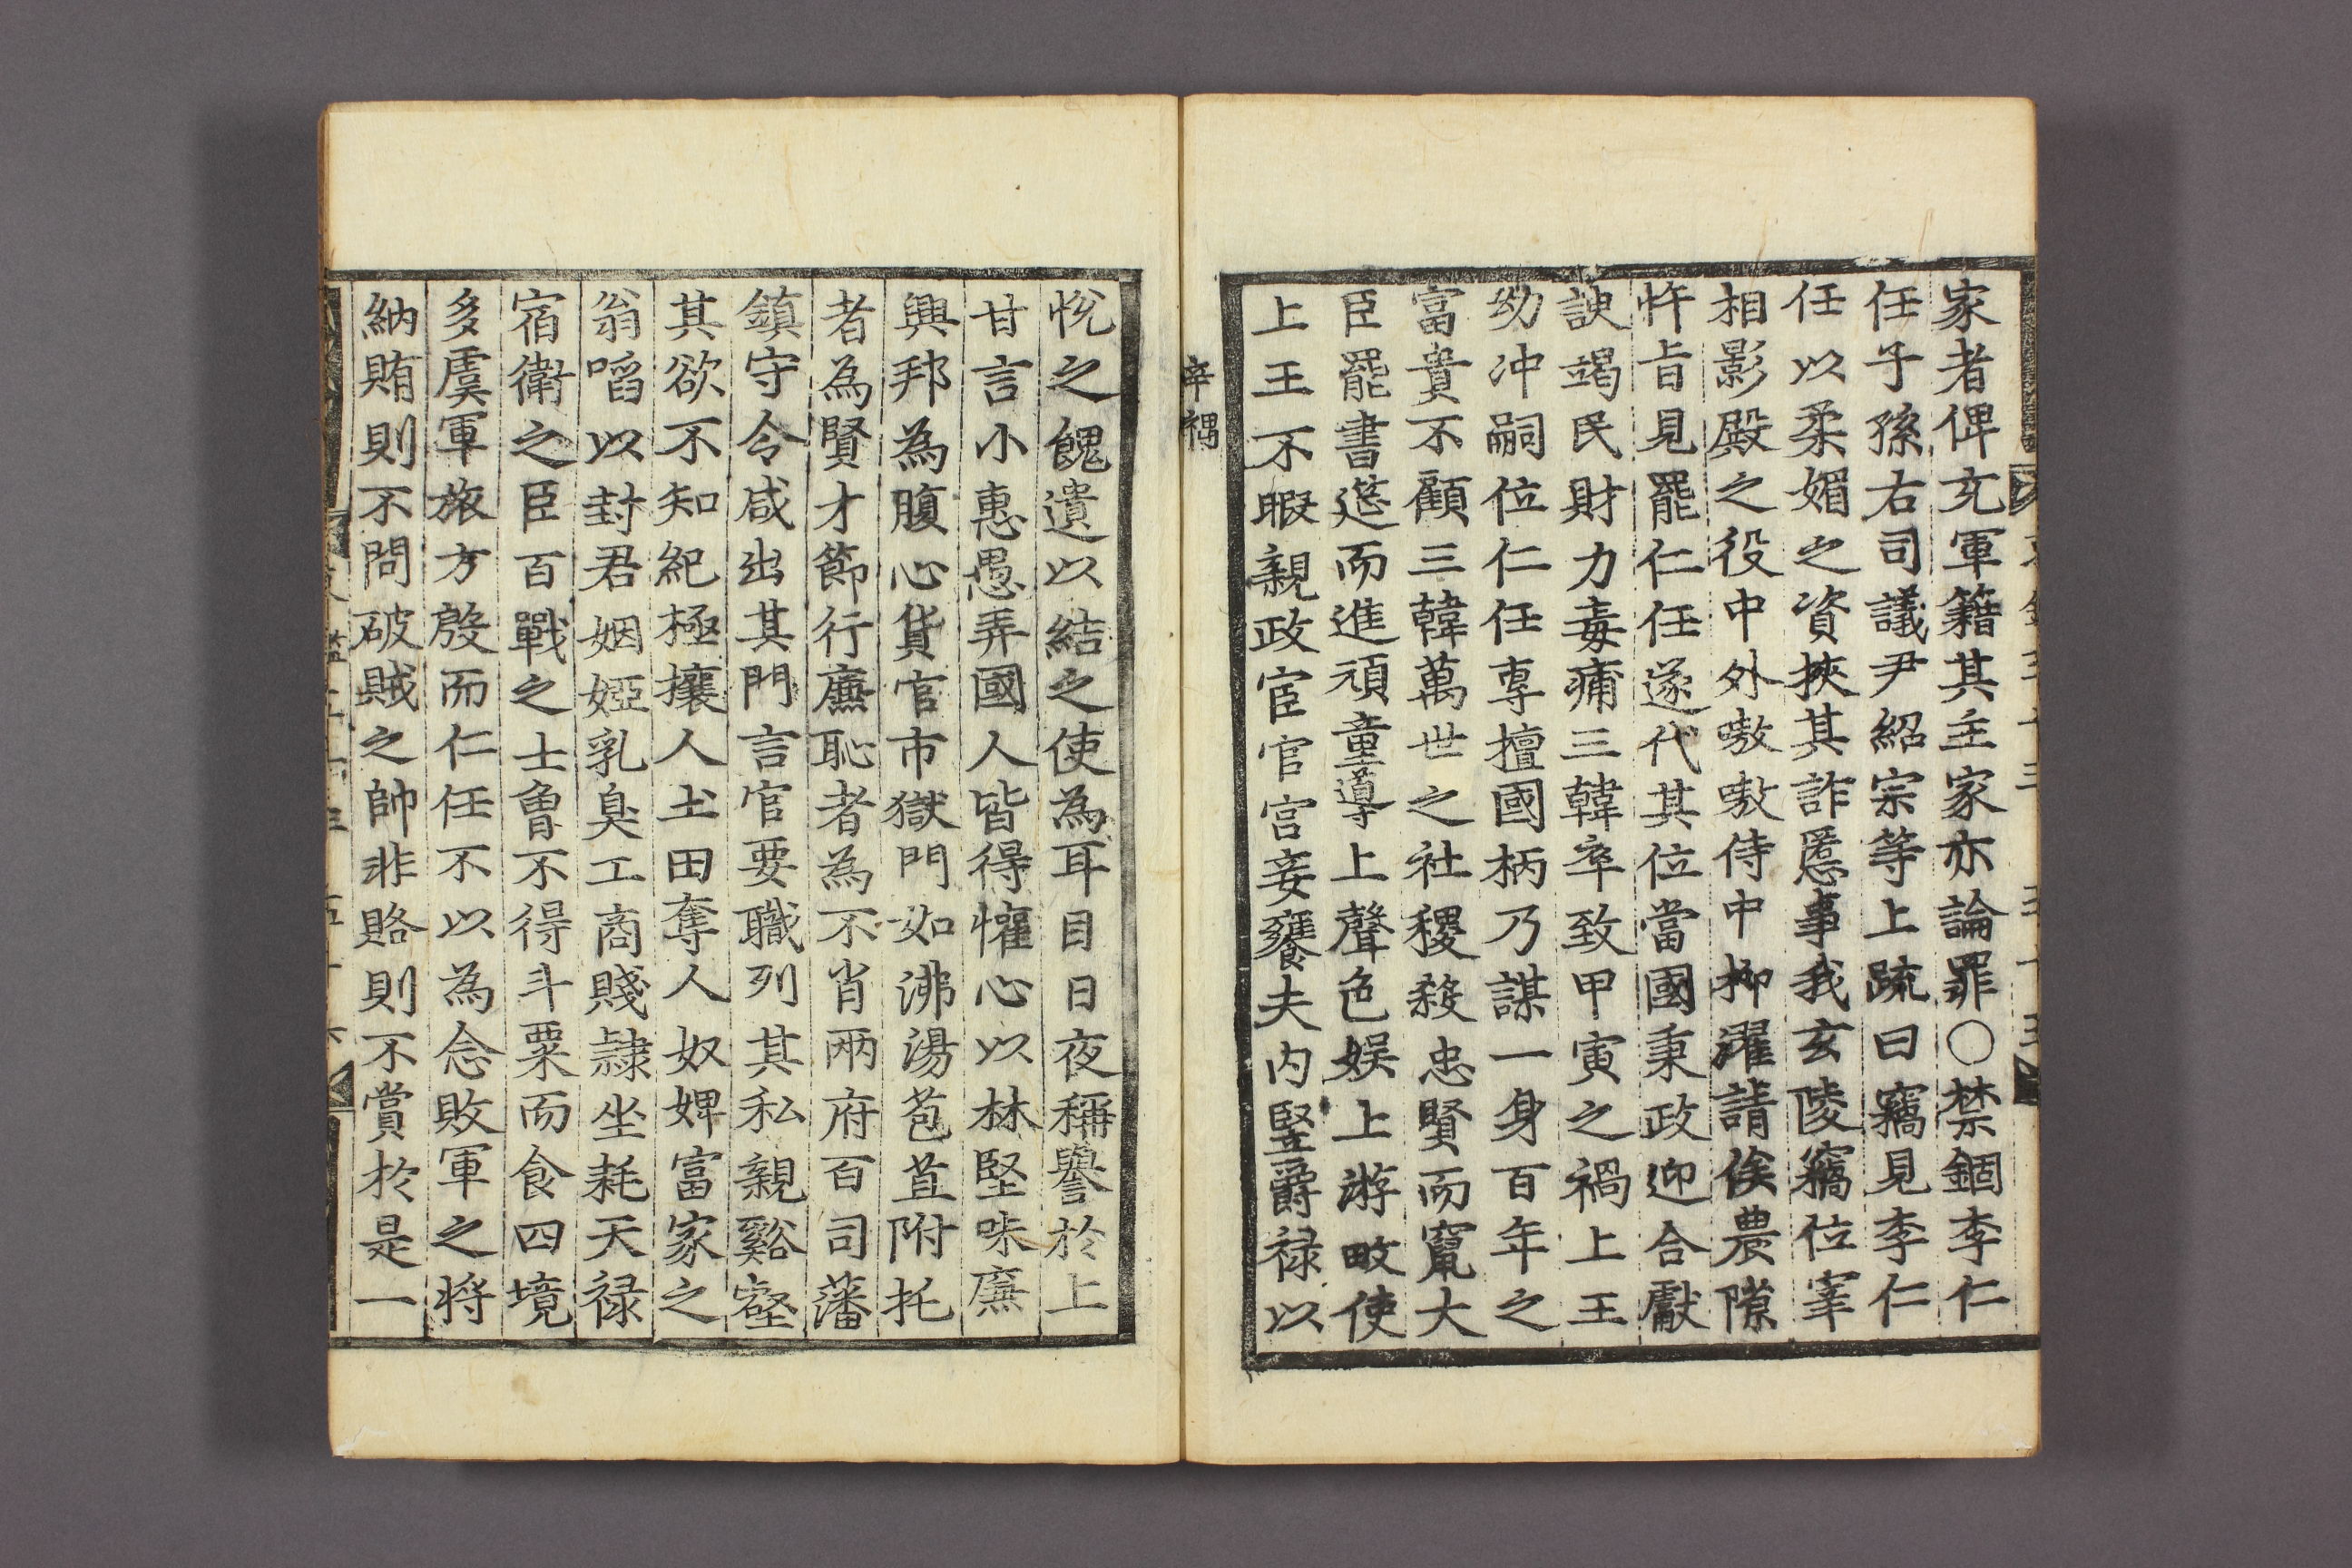 家者俾充軍籍其主家亦論罪○禁錮李仁
任子孫右司議尹紹宗等上䟽曰竊見李仁
任以柔媚之資挾其詐慝事我玄陵竊位宰
相影殿之役中外嗷嗷侍中柳濯請俟農隙
忤㫖見罷仁任遂代其位當國秉政迎合獻
諛竭民財力毒痡三韓卒致甲寅之禍上王
㓜冲嗣位仁任專擅國柄乃謀一身百年之
富貴不顧三韓萬世之社稷殺忠賢而竄大
臣罷書莚而進頑童導上聲色娛上游畋使
上王不暇親政宦官宫妾饔夫内竪爵禄以
辛禑
悅之餽遺以結之使為耳目日夜稱譽於上
甘言小惠愚弄國人皆得懽心以林堅味廉
興邦為腹心貨官市獄門如沸湯苞苴附托
者為賢才節行廉恥者為不肖兩府百司藩
鎮守令咸出其門言官要職列其私親谿壑
其欲不知紀極攘人土田奪人奴婢富家之
翁啗以封君姻婭乳臭工商賤隷坐耗天禄
宿衛之臣百戰之士曾不得斗粟而食四境
多虞軍旅方殷而仁任不以為念敗軍之將
納賄則不問破賊之帥非賂則不賞於是一